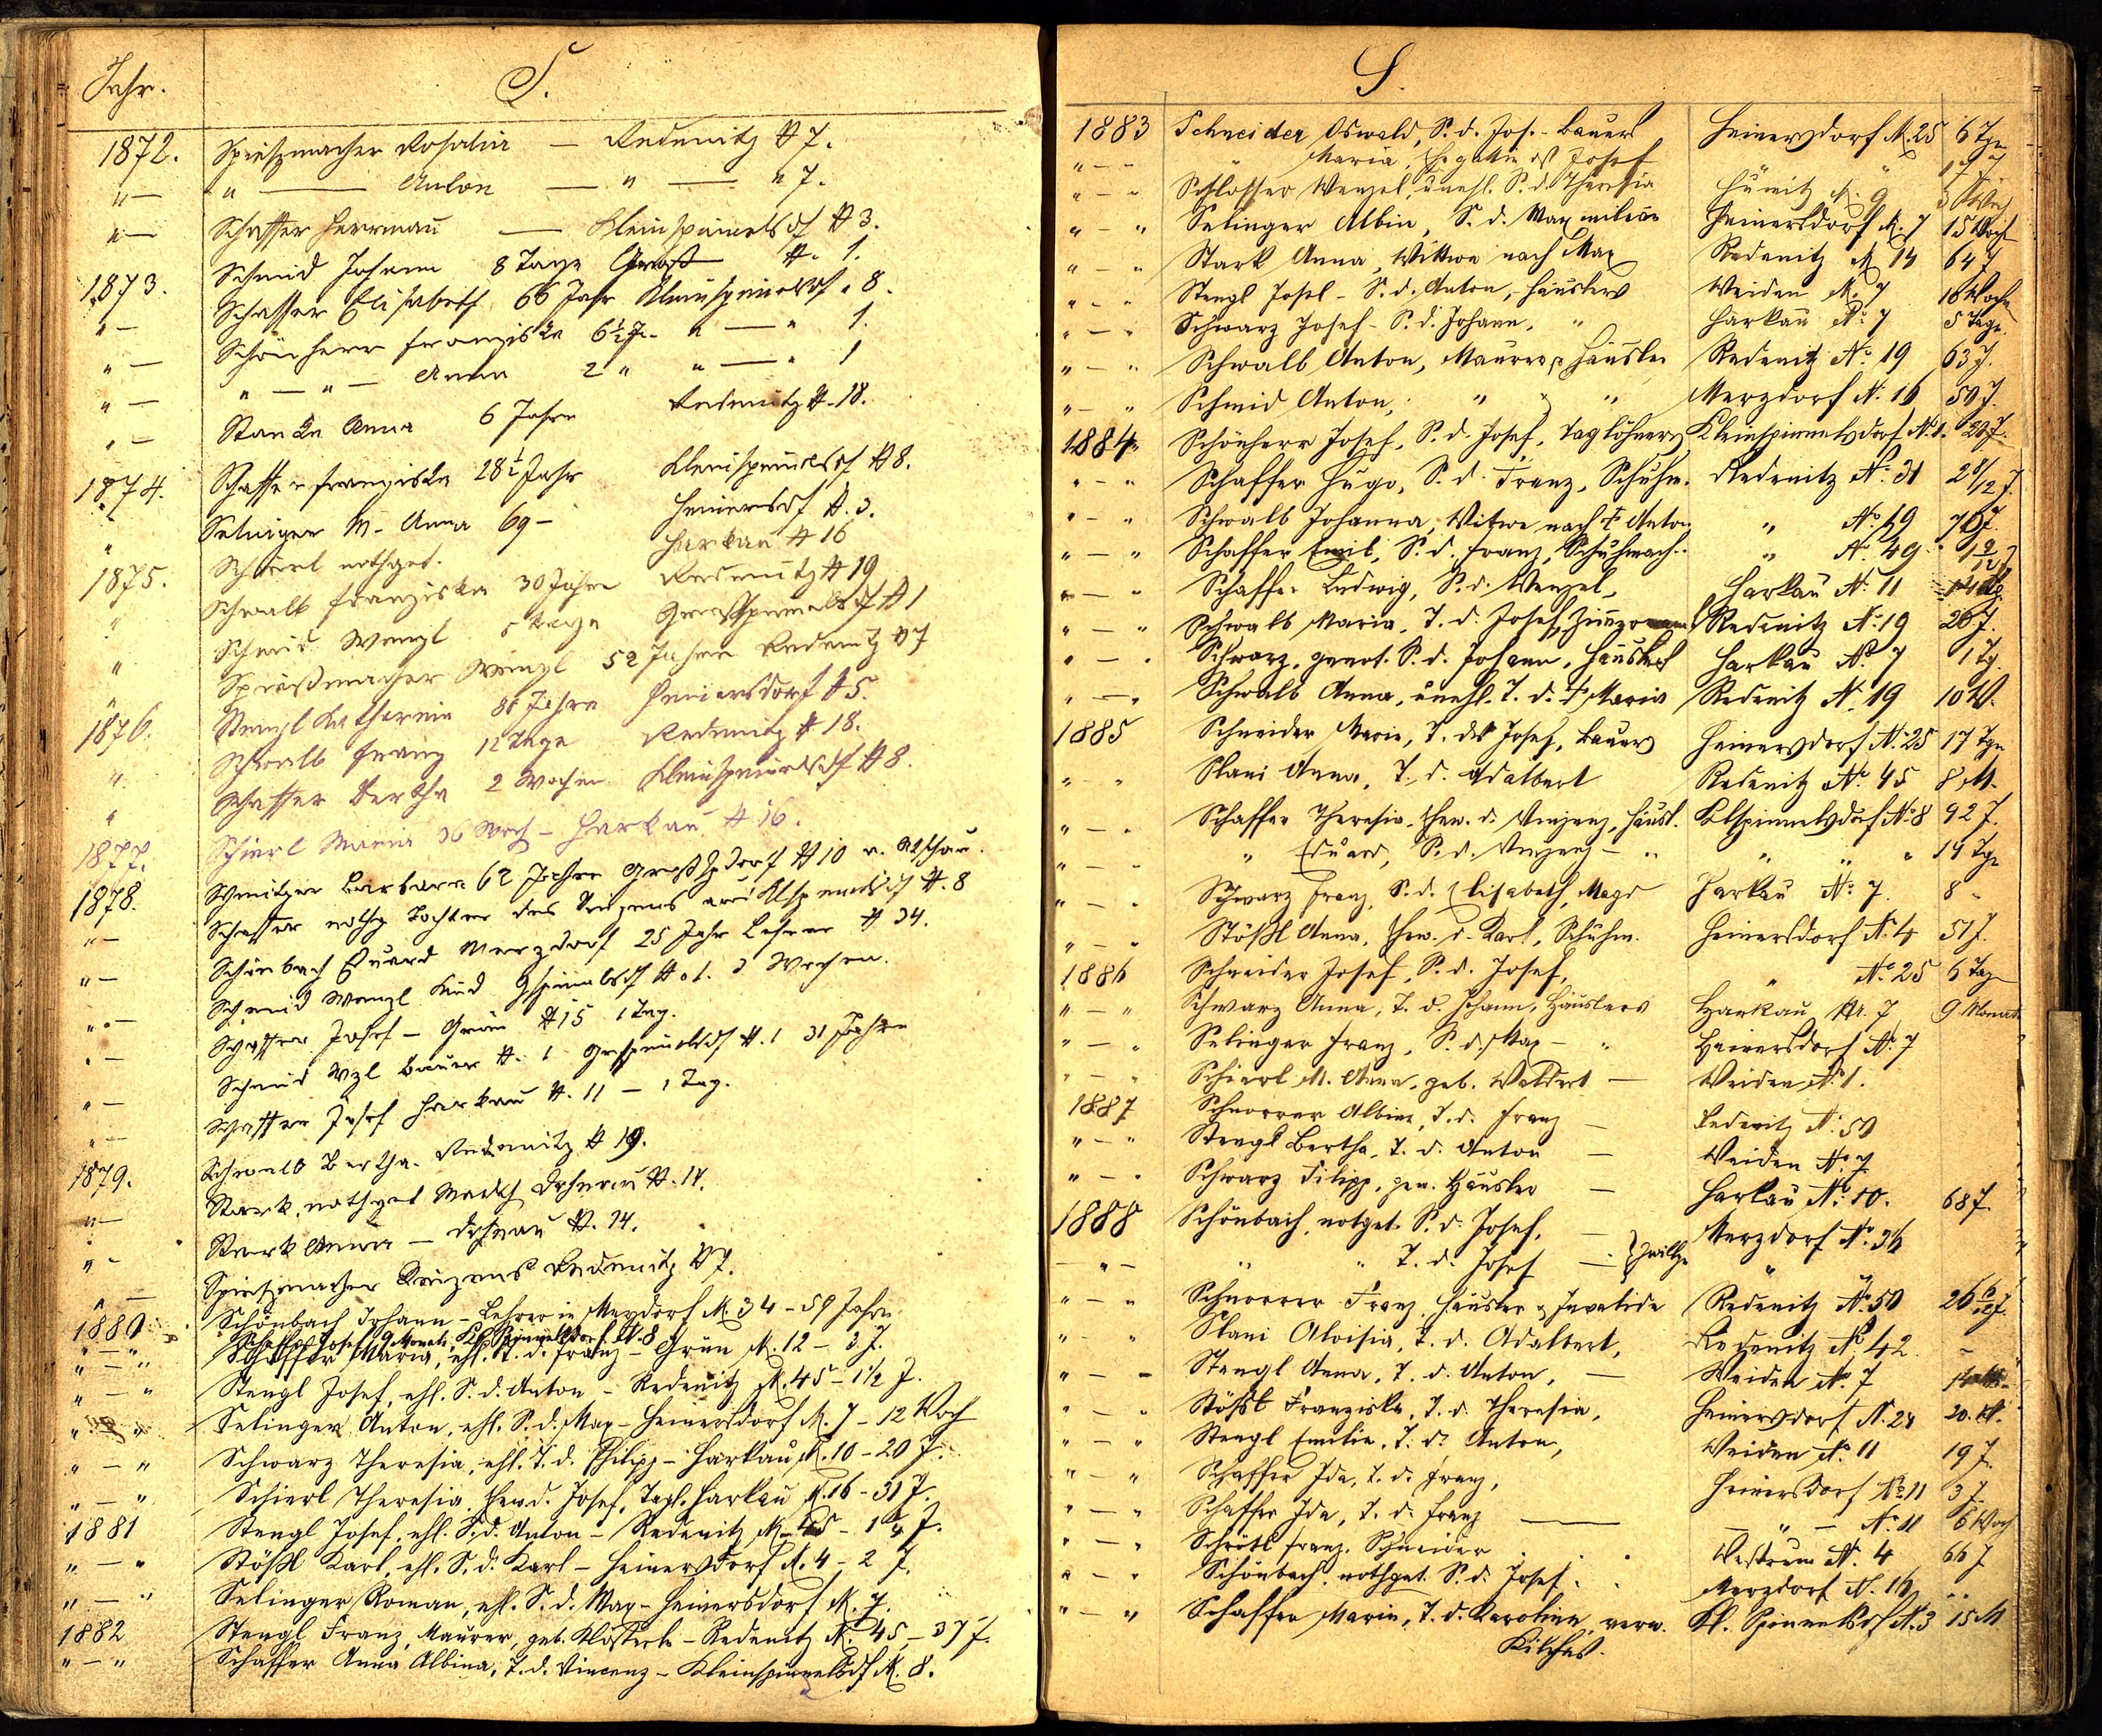 Jahr. S.
1872. Spießmacher Rosalia — Redenitz N 7.
" — " — Anton — " — " 7.
" — Schaffer Herrmann — Kleinspinnelsdf N 3.
Schmid Johann 8 Tage N. 1.
1873. Schaffer Elisabeth 66 Jahr Kleinspinnelsdf " 8.
" — Schönherr Franziska 6½ J. " — " 1.
" — " — " — Anna 2 " " — " 1
" — Anna 6 Jahre Redenitz N. 18.
1874. Schaffer Franziska 28½ Jahr Kleinspinnelsdf N 8.
" Selinger M. Anna 69 — Heinersdf N. 3.
" Schierl nothget. Harkau N 16
1875. Schwalb Franziska 30 Jahre Redenitz N 19
" Schmid Wenzl 5 Tage Großspinnelsdf N 1
" Spießmacher Wenzl 52 Jahre Redenitz N 7
" Stengl Katharina 86 Jahre Heinersdorf N 5.
1876. Schwalb Franz 12 Tage Redenitz N 18.
" Schaffer Bertha 2 Wochen Kleinspinnelsdf N 8.
" Schierl Maria 36 Woch — Harkau N. 16.
1877. Barbara 62 Jahre N 10
1878. Schaffer nothg Tochter des Vinzens N. 8
" — Schönbach Eduard Merzdorf 25 Jahr Lehrer N 34.
" — Schmid Wenzl Kind Gspinnelsdf N 1. 3 Wochen.
" — Schaffer Josef — Grün N 15 1 Tag.
" — Schmid Wzl Bauer N. 1 Grspinnelsdf N. 1 31 Jahre
" — Schaffer Josef Harkau N. 11 — 1 Tag.
" — Schwalb Bertha. Redenitz N 19.
1879. Stark, nothget N. 14.
" — Stark Anna — N. 14.
" — Spießmacher Vinzens Redenitz N 7.
" — Schönbach Johann — Lehrer in Merzdorf N. 34 — 59 Jahre
1880 Schaffer Josef 9 Monat, Kl. Spinnelsdorf N. 8
" — " Schaffer Maria, ehl. T. d. Franz — Grün N. 12 — 3 J.
" — " Stengl Josef, ehl. S. d. Anton — Redenitz N. 45 — 1½ J.
" — " Selinger Anton, ehl. S. d. Max — Heinersdorf N. 7 — 12 Woch
" — " Schwarz Theresia, ehl. T. d. Philipp — Harkau N. 10 — 20 J.
" — " Schierl Theresia, Ehew. d. Josef, Tagl. Harkau N. 16 — 31 J.
1881 Stengl Josef, ehl. S. d. Anton — Redenitz N. 45 — 1¼ J.
" — " Stößl Karl, ehl. S. d. Karl — Heinersdorf N. 4 — 2 J.
" — " Selinger Roman, ehl. S. d. Max — Heinersdorf N. 7.
1882 Stengl Franz, Maurer, geb. — Redenitz N. 45 — 37 J.
" — " Schaffer Anna Albina, T. d. Vincenz — Kleinspinnelsdf N. 8.
S.
1883 Schneider Oswald, S. d. Jos. — Bauers Heinersdorf N. 25 6 Tge
" — " " Maria, Ehegattin des Josef " "
" — " Schlosser Wenzel, unehl. S. d. Theresia N. 9
" — " Selinger Albin, S. d. Maxmilian Heinersdorf N. 7 15 Woch
" — " Stark Anna, Wittwe nach Max Redenitz N 14 64 J
" — " Stengl Josef — S. d. Anton, Häuslers Weiden N. 7 18 Woche
" — " Schwarz Josef — S. d. Johann, " Harkau No 7 5 Tage
" — " Schwalb Anton, Maurer u. Häusler Redenitz No 19 63 J.
" — " Schmid Anton, " " " Merzdorf N. 16 50 J.
1884 Schönherr Josef, S. d. Josef, Taglöhners Kleinspinnelsdorf N. 1. 20 J.
" — " Schaffer Hugo, S. d. Franz, Schuhm. Redenitz No 31
" — " Schwalb Johanna, Witwe nach † Anton " No 19
" — " Schaffer Emil, S. d. Franz, Schuhmach. " No 49
" — " Schaffer Ludwig, S. d. Wenzel, Harkau N. 11
" — " Schwalb Maria, T. d. Josef, Redenitz N. 19 26 J.
" — " Schwarz, genot. S. d. Johann, Häuslers Harkau No 7 1 Tg.
" — " Schwalb Anna, unehl. T. d. † Maria Redenitz N. 19 10 W.
1885 Schneider Maria, T. des Josef, Bauers Heinersdorf N. 25 17 Tge
" — " Slani Anna, T. d. Adalbert Redenitz No 45 8 M.
" — " Schaffer Theresia, Ehew. d. Vinzenz, Häusl. Klspinnelsdorf No 8 92 J.
" — " " Eduard, S. d. Vinzenz — " " " " 14 Tge
" — " Schwarz Franz, S. d. Elisabeth, Magd Harkau No 7 8 "
" — " Stößl Anna, Ehew. d. Karl, Schuhm. Heinersdorf No 4 51 J.
1886 Schneider Josef, S. d. Josef, " No 25 6 Tag
" — " Schwarz Anna, T. d. Johann, Häuslers Harkau Nr. 7 9 Monat
" — " Selinger Franz, S. d. Max — " Heinersdorf N. 7
" — " Schierl M. Anna, geb. Waldert — Weiden N. 1.
1887 Schnorrer Albine, T. d. Franz — Redenitz N. 50
" — " Stengl Bertha, T. d. Anton — Weiden No 7
" — " Schwarz Filipp, gew. Häusler — Harkau No 10. 68 J.
1888 Schönbach, notget. S. d. Josef, — Merzdorf No 34
— " — " " T. d. Josef — } Zwillge "
" — " Schnorrer Franz, Häusler & Invalide Redenitz No 50
" — " Slani Aloisia, T. d. Adalbert, Redenitz No 42 —
" — " Stengl Anna, T. d. Anton, — Weiden No 7
" — " Stößl Franziska, T. d. Theresia, Heinersdorf N. 24
" — " Stengl Emilie, T. d. Anton, Weiden No 11 19 J.
" — " Schaffer Ida, T. d. Franz, Heinersdorf No 11 3 J.
" — " Schaffer Ida, T. d. Franz — — " — No 11 6 Woch
" — " Franz, Schneider . . . N. 4 66 J
" — " Schönbach, nothget. S. d. Josef. . Merzdorf N. "
" — " Schaffer Maria, T. d. Karoline, verw. Kl. Spinnelsdf N. 3 15 M